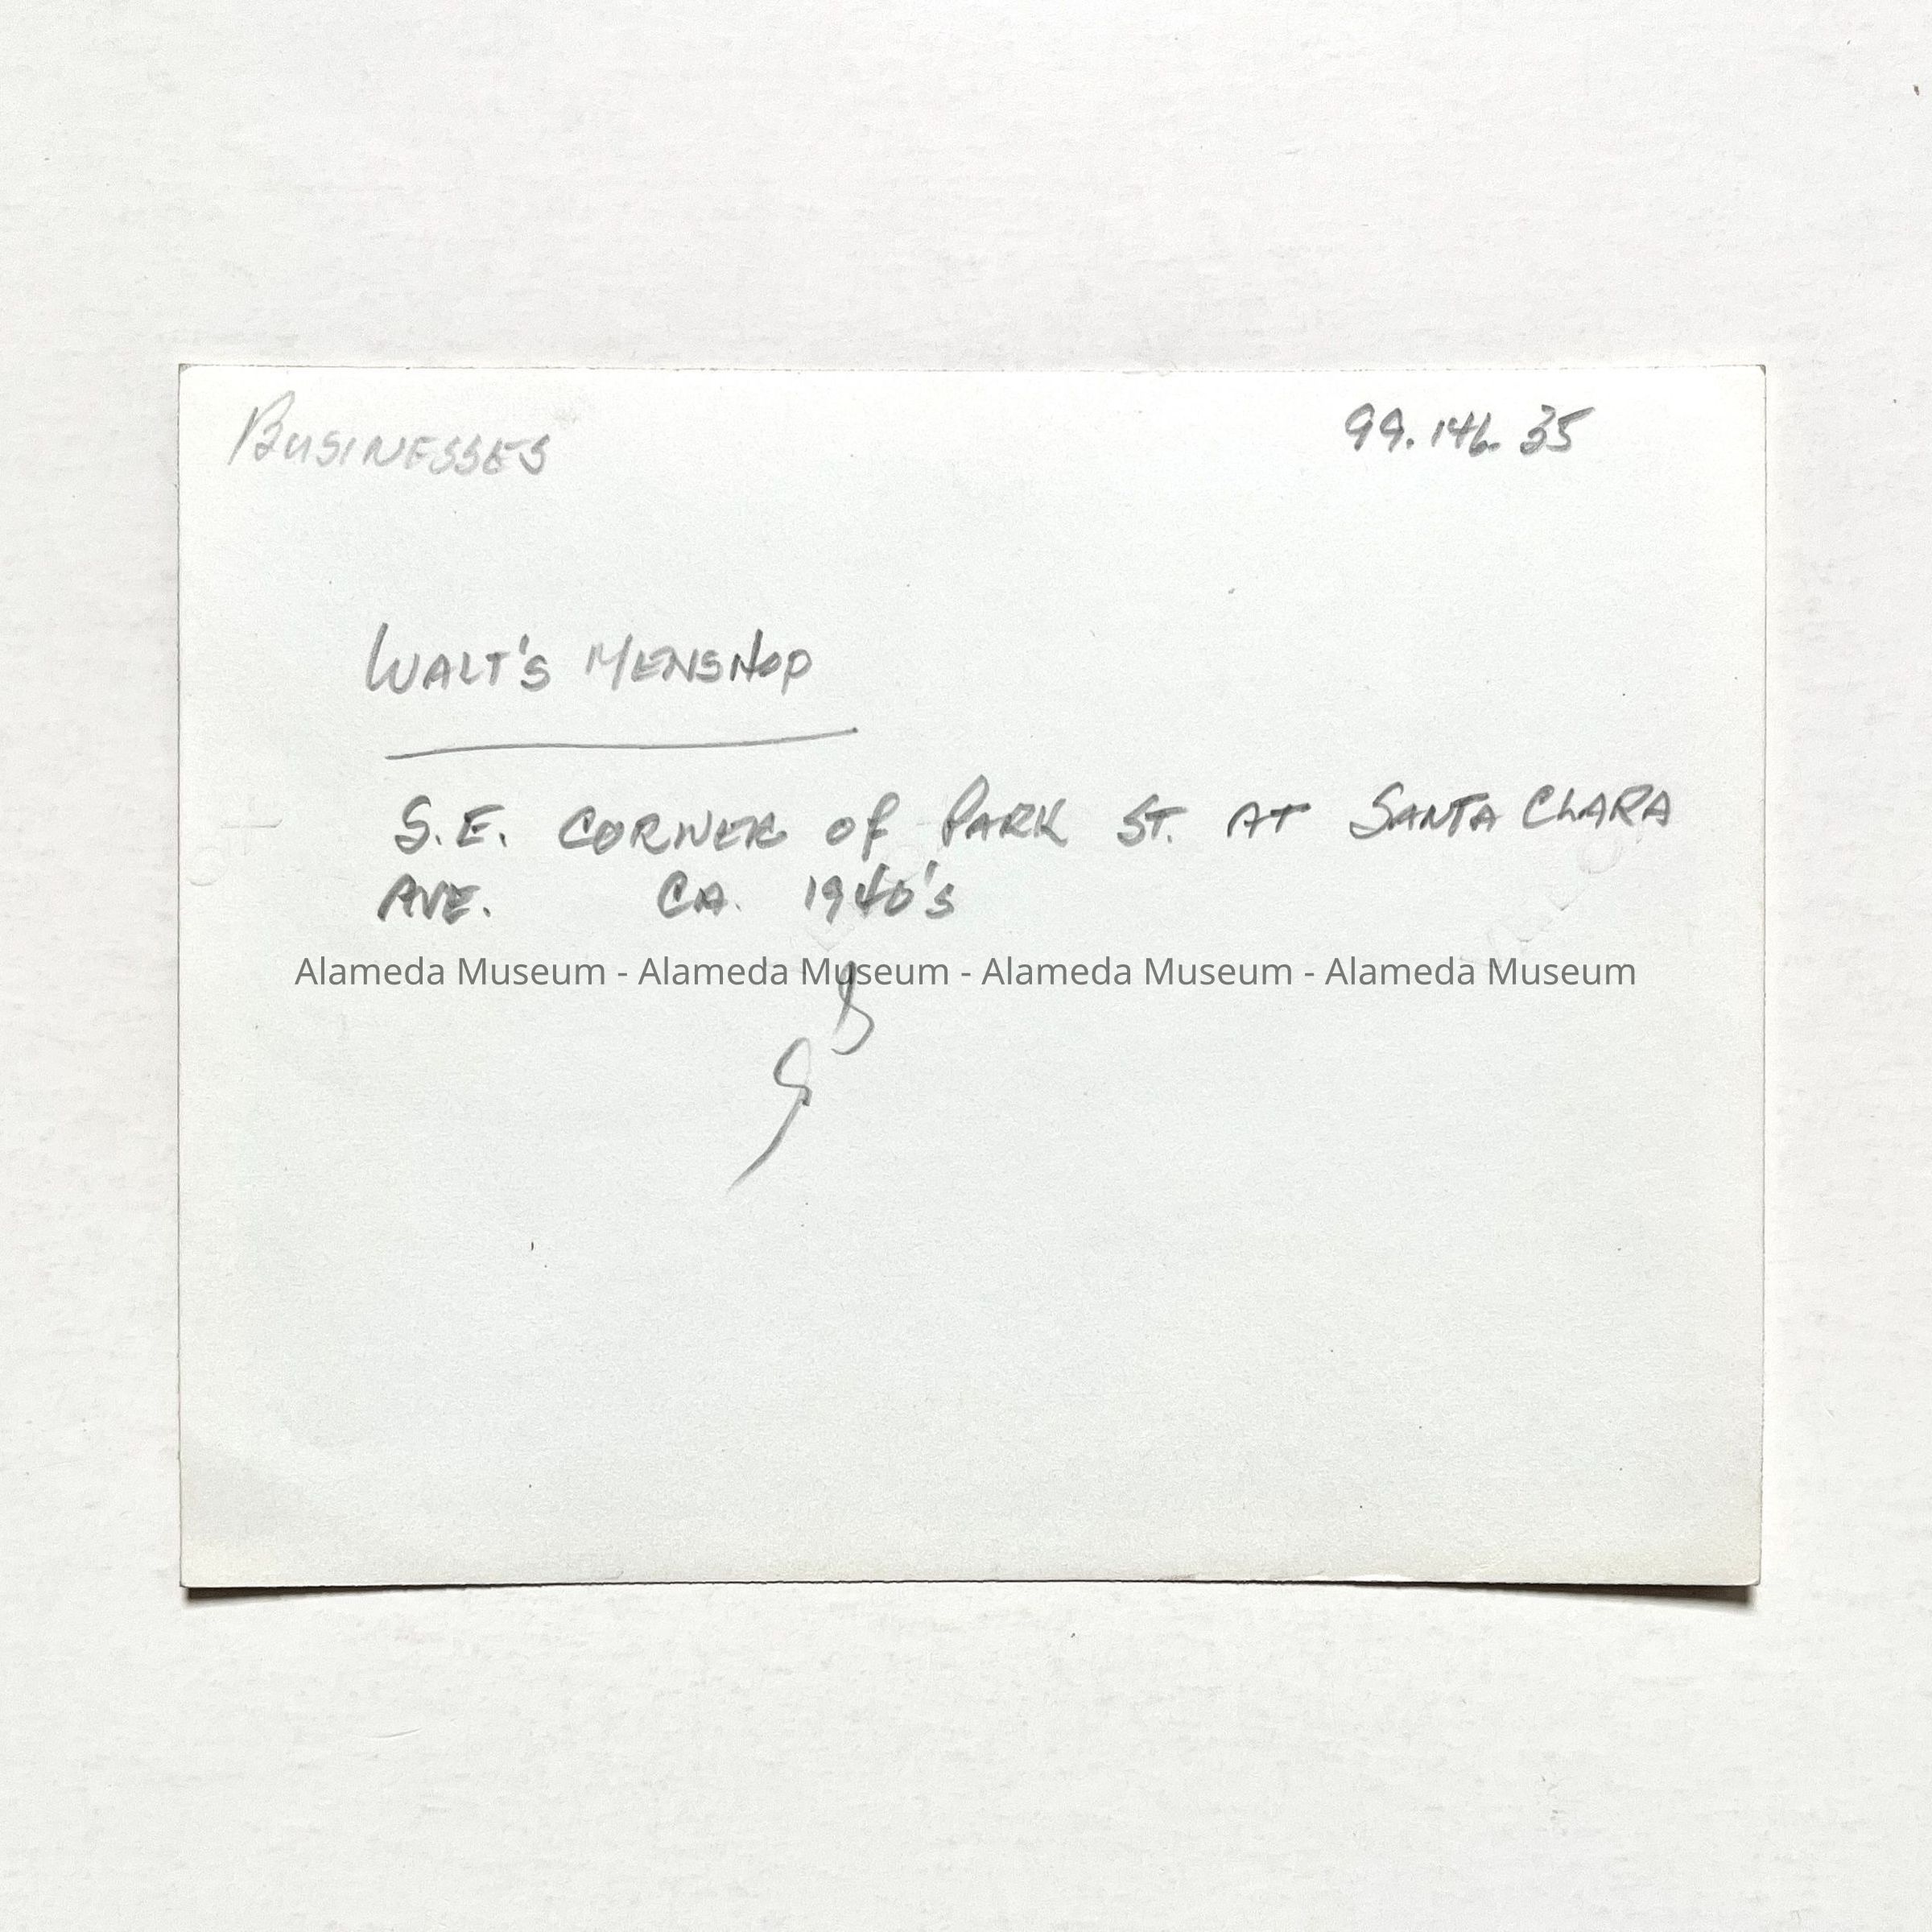 BUSINESSES
99.146.35
WALT'S MENSHOP
S.E. CORNER OF PARK ST. AT SANTA CLARA
AVE. CA. 1940's
Alameda Museum - Alameda Museum - Alameda Museum - Alameda Museum